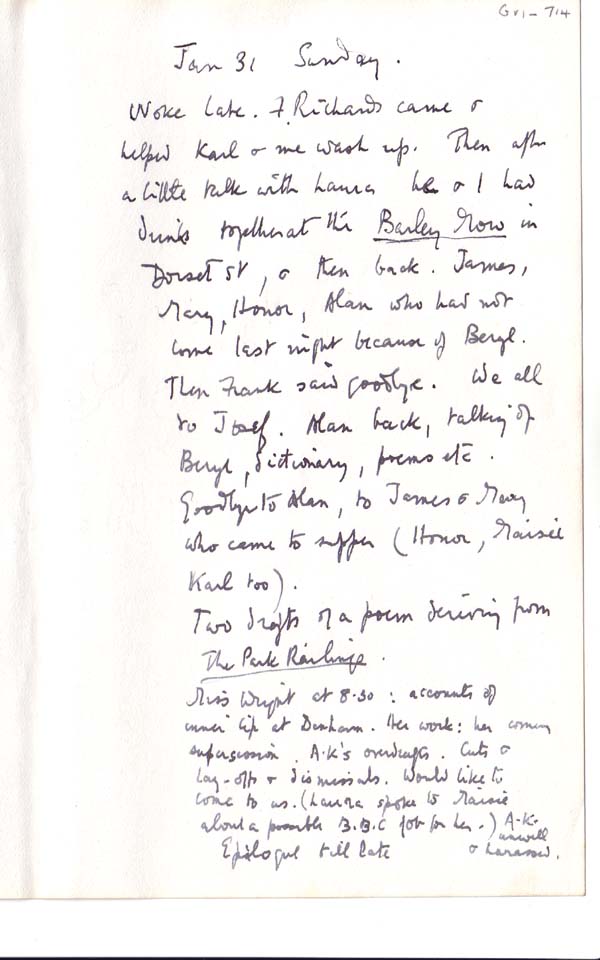 GVI - 714
Jan 31 Sunday.
Woke late. F. Richards came &
helped Karl & me wash up. Then after
a little talk with Laura he & I had
drinks together at the Barley Mow in
Dorset St, & then back. James,
Mary, Honor, Alan who had not
come last night because of Beryl.
Then Frank said goodbye. We all
to Josef. Alan back, talking of
Beryl, dictionary, poems etc.
Goodbye to Alan, to James & Mary
who came to supper (Honor, Maisie
Karl too).
Two drafts of a poem deriving from
The Park Railings.
Miss Wright at 8.30: accounts of
inner life at Denham. Her work: her coming
supersession. A.K's overdrafts. Cuts &
lay-offs & dismissals. Would like to
come to us. (Laura spoke to Maisie
about a possible B.B.C job for her.) A.K.
unwell
Epilogue till late & harassed.